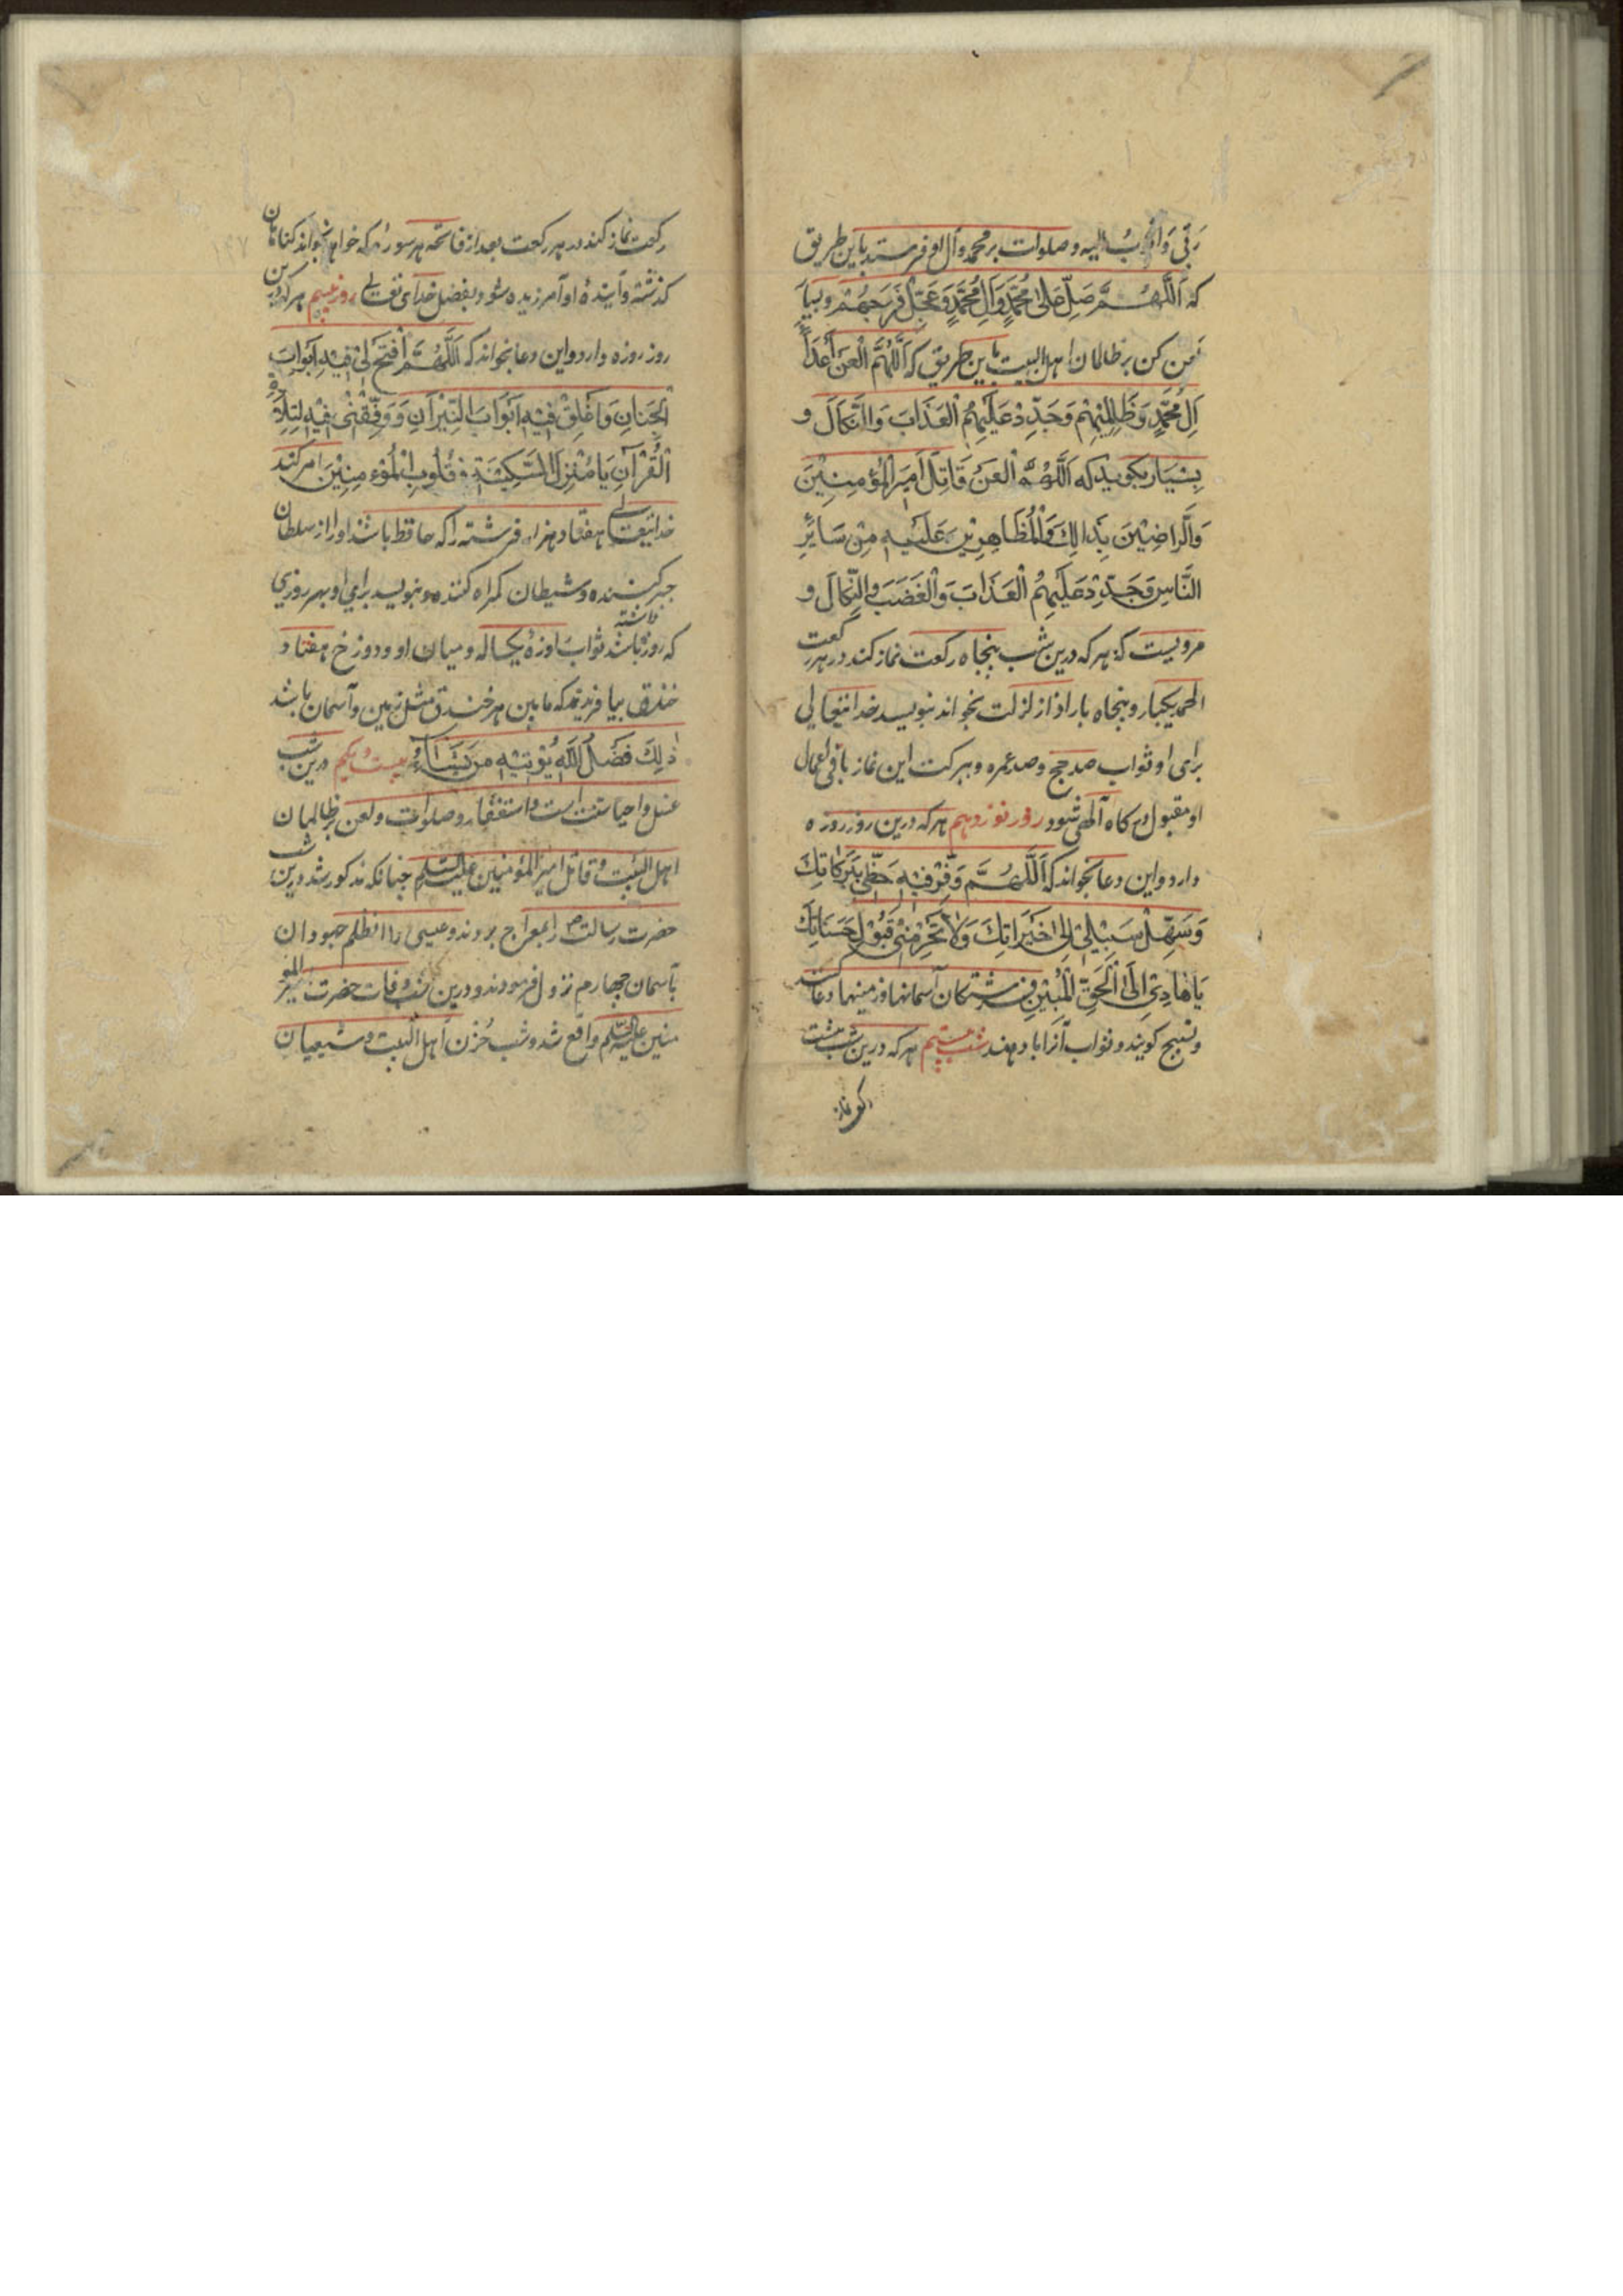 رَبّی وَاَتُوبُ الیه و صلوات بر محمد و آل او فرستد باین طریق
که اَللّٰهُمَّ صَلِّ عَلیٰ مُحَمَّدٍ وَاٰلِ مُحَمَّدٍ وَعَجِّلْ فَرَجَهُمْ و بسیار
لعن کن بر ظالمان اهل البیت باین طریق که اَللّٰهُمَّ الْعَنْ اَعْدَاءَ
اٰلِ مُحَمَّدٍ وَظَالِمِیْهِمْ وَجَدِّدْ عَلَیْهِمُ الْعَذَابَ وَالنَّکَالَ و
بِسْیَار بکوید که اَللّٰهُمَّ الْعَنْ قَاتِلَ اَمِیْرِ الْمُؤْمِنِیْنَ
وَالرَّاضِیْنَ بِذَالِكَ وَالْمُظَاهِرِیْنَ عَلَیْهِ مِنْ سَایِرِ
النَّاسِ وَجَدِّدْ عَلَیْهِمُ الْعَذَابَ وَالْغَضَبَ وَالنَّکَالَ و
مرویست که هر که درین شب پنجاه رکعت نماز کند در هر رکعت
الحمد یکبار و پنجاه بار اذا زلزلت بخواند بنویسد خدایتعالی
برای او ثواب صد حج و صد عمره و ببرکت این نماز باقی اعمال
او مقبول درکاه آلهی شود روز نوزدهم هر که درین روز روزه
دارد و این دعا بخواند که اَللّٰهُمَّ وَفِّرْ فِیْهِ حَظِّیْ بِبَرَکَاتِكَ
وَسَهِّلْ سَبِیْلِیْ اِلیٰ خَیْرَاتِكَ وَلَا تَحْرِمْنِیْ قَبُوْلَ حَسَنَاتِكَ
یَا هَادِیَ اِلَی الْحَقِّ الْمُبِیْنِ فرشتکان آسمانها و زمینها دعا کنند
و تسبیح کویند و ثواب آنرا باو دهند شب بیستم هر که درین شب هشت
رکعت نماز
رکعت نماز کند در هر رکعت بعد از فاتحه هر سوره که خواهد بخواند کناهان
کذشته و آیندهٔ او آمرزیده شود بفضل خدای تعالی روز بیستم هر که درین
روز روزه دارد و این دعا بخواند که اَللّٰهُمَّ افْتَحْ لِیْ فِیْهِ اَبْوَابَ
الْجِنَانِ وَاَغْلِقْ فِیْهِ اَبْوَابَ النِّیْرَانِ وَوَفِّقْنِیْ فِیْهِ لِتِلَاوَةِ
الْقُرْآنِ یَا مُنْزِلَ السَّکِیْنَةِ فِیْ قُلُوبِ الْمُؤْمِنِیْنَ امر کند
خدایتعالی هفتاد هزار فرشته را که حافظ باشند او را از سلطان
جبر کننده و شیطان کمراه کننده و بنویسد برای او بهر روزی
که روزه داشته باشد ثواب روزهٔ یکساله و میان او و دوزخ هفتاد
خندق بیافریند که مابین هر خندق مثل زمین و آسمان باشد
ذٰلِكَ فَضْلُ اللّٰهِ یُؤْتِیْهِ مَنْ یَشَاءُ بیست و یکم درین شب
غسل و احیا سنت است و استغفار و صلوات و لعن بر ظالمان
اهل البیت و قاتل امیر المؤمنین علیه السلم چنانکه مذکور شد درین شب
حضرت رسالت ص را بمعراج بردند و عیسی را از ظلم جهودان
بآسمان چهارم نزول فرمودند و درین شب وفات حضرت امیر المو
منین علیه السلم واقع شد و شب حُزن اهل البیت و شیعیان